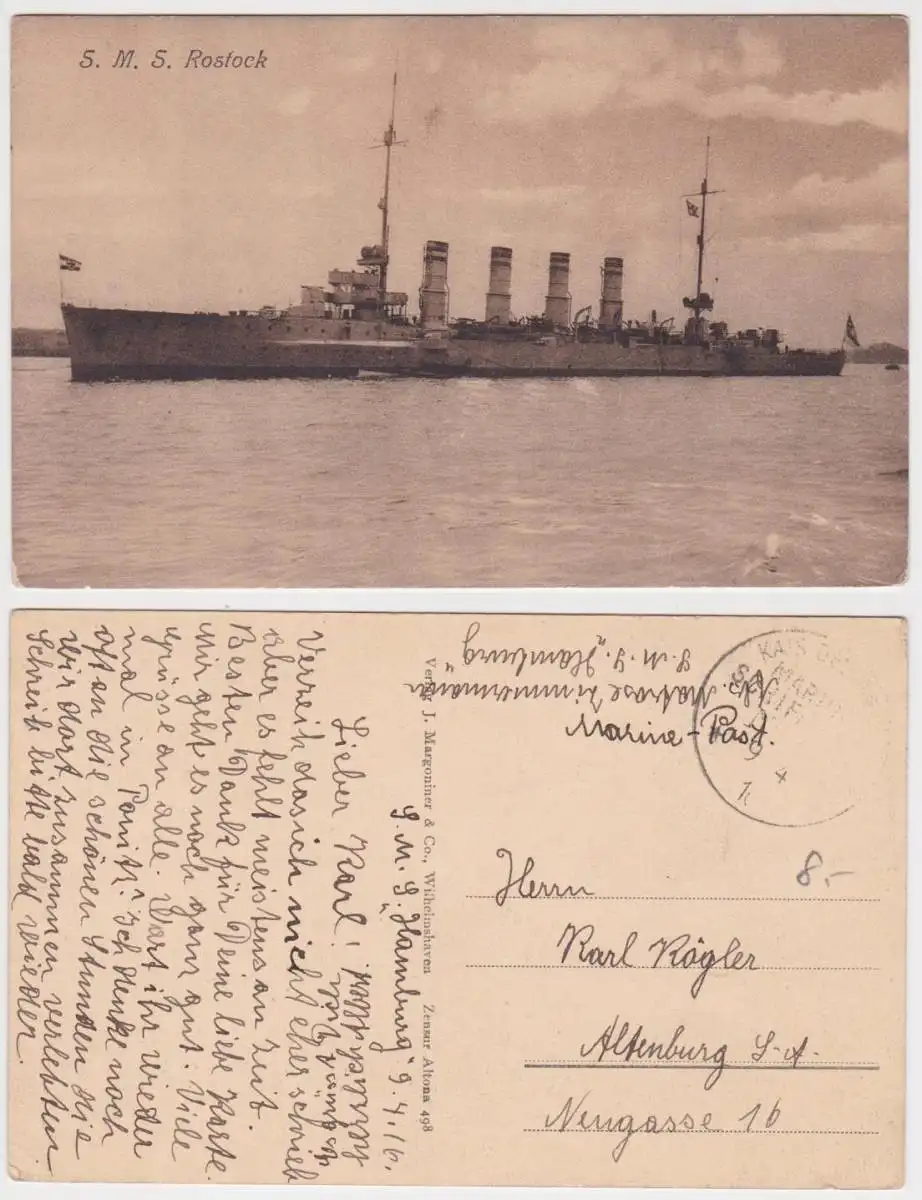 S. M. S. Rostock
Abs. Matrose Zimmermann
S. M. S. "Hamburg"
Marine-Post.
KAIS DEU
MARINE
SCHIFFSPOST
4
Herrn
Karl Kögler
Altenburg S.-A.
Neugasse 16
8.-
Verlag J. Margoniner & Co., Wilhelmshaven Zensur Altona 498
S. M. S. "Hamburg" 9.4.16.
Lieber Karl!
Verzeih das ich nicht eher schrieb
aber es fehlt meistens an Zeit.
Besten Dank für Deine liebe Karte.
Mir geht es noch ganz gut. Viele
Grüsse an alle. Wart ihr wieder
mal in Ponitz? Ich denke noch
oft an die schönen Stunden die
wir dort zusammen verlebten
Schreib bitte bald wieder.